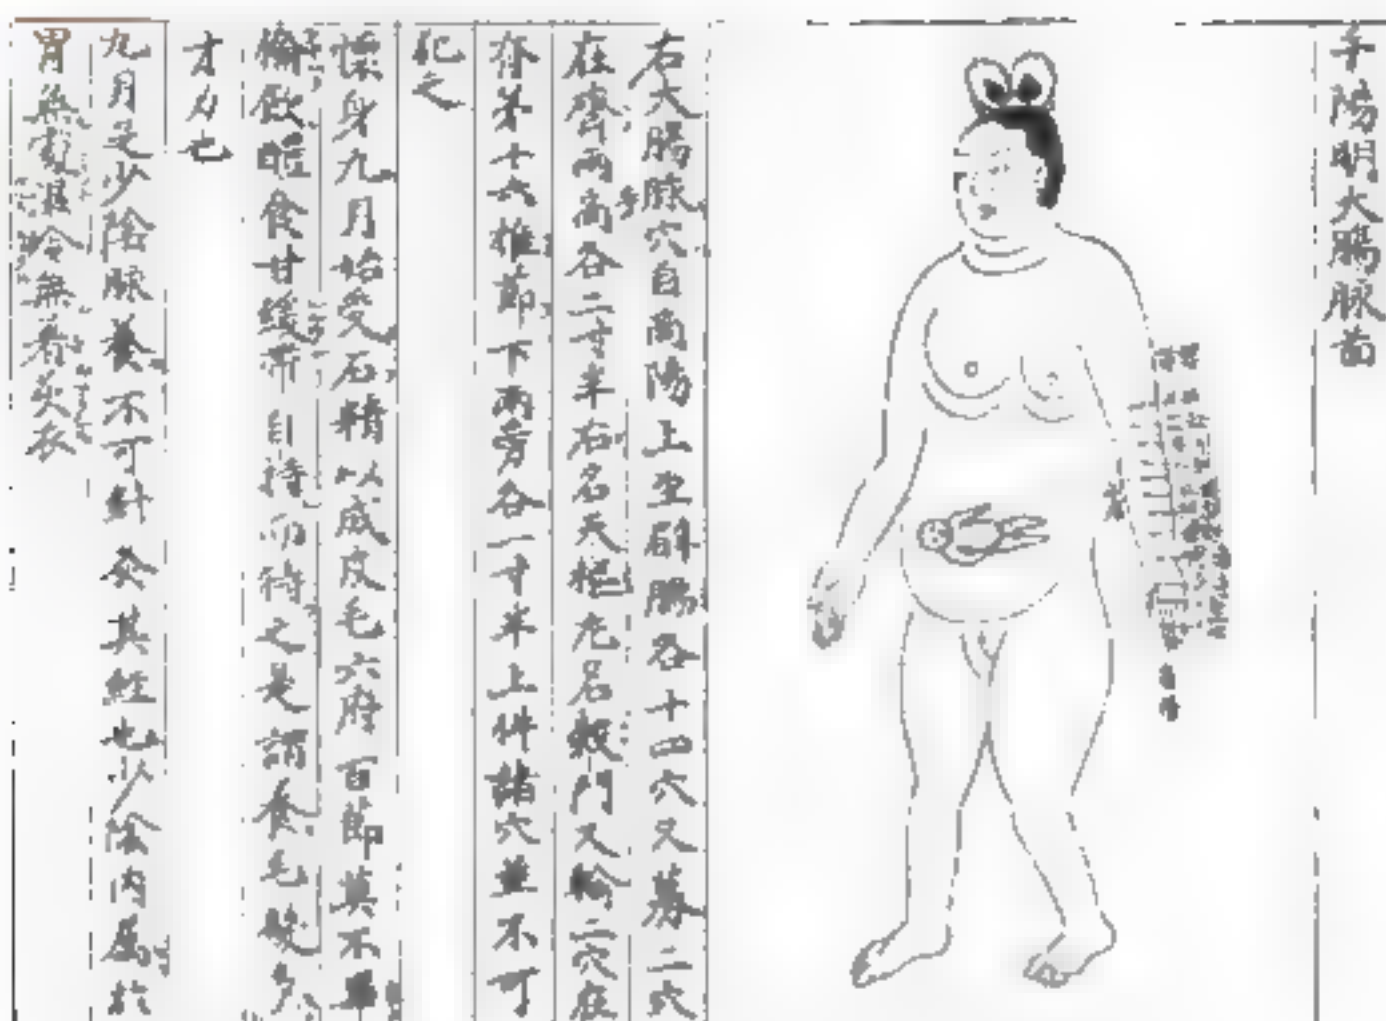 手陽明大腸脉啚
右大腸脉穴自商陽上至辟腸各十四穴又募二穴
在齊兩髙各二寸半右名天樞左名穀門又輸二穴在
脊第十六椎節下兩旁各一寸半上件諸穴並不可
犯之
懷身九月始受石精以成皮毛六府百節莫不畢
偹飲醴食甘緩帶自持而待之是謂養毛髮多
才力也
九月是少陰脉養不可針灸其經也少陰内屬於
胃無處濕冷無著炙衣